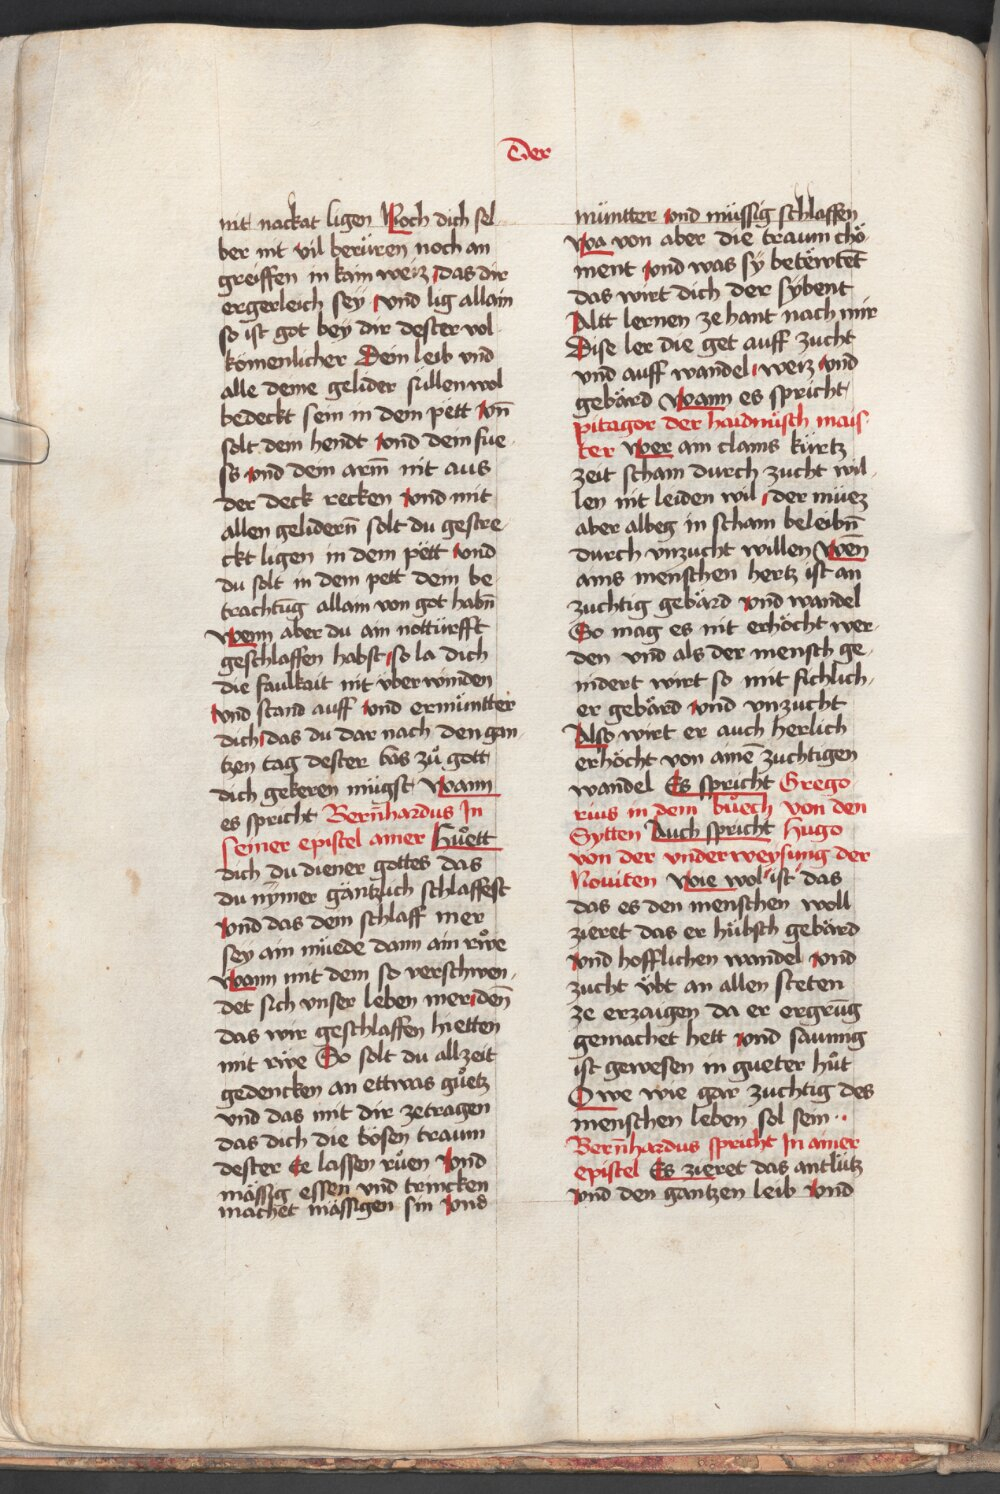 Der
nit nackat ligen Noch dich sel
ber nit vil berüren noch an
greiffen in kain weiz das dir
ergerleich sey vnd lig allain
so ist got bey dir dester vol
kömenlicher Dein leib vnd
alle deine gelider süllen wol
bedeckt sein in dem pëtt vn̄
solt dein hendt vnd dein füe
ss vnd dein arm̄ nit aus
der deck recken vnd mit
allen geliderñ solt du gestre
ckt ligen in dem pëtt vnd
du solt in dem pett dein be
trachtūg allain von got habñ
Wenn aber du ain nottürfft
geschlaffen habst so la dich
die faulkait nit vber winden
vnd stand auff vnd ermüntter
dich das du dar nach den gan
tzen tag dester bas zů gott
dich gekeren mügst Wann
es spricht Berñhardus In
seiner epistel ainer Hůett
dich du diener gottes das
du nÿmer gäntzlich schlaffest
vnd das dein schlaff mer
sey ain müede dann ain rẘe
Wann mit dem so verschwen
det sich vnser leben mer den̄
das wir geschlaffen hietten
mit rẘe So solt du allzeit
gedencken an ettwas gůetz
vnd das mit dir zetragen
das dich die bösen traum
dester Ee lassen růen vnd
mässig essen vnd trincken
machet mässigen sin vnd
müntter vnd müssig schlaffen
Wa von aber die traum chö
ment vnd was sy betëwtet̄
das wirt dich der sybent
Altt lernen ze hant nach mir
Dise ler die get auff zucht
vnd auff wandel weiz vnd
gebärd Wann es spricht
pitagor der haidnüsch mais
ter Wer am clains kürtz
zeit scham durch zucht wil
len nit leiden wil der müez
aber albeg in scham beleibñ
durch vnzucht willen Wen̄
ains menschen hertz ist an
zuchtig gebärd vnd wandel
So mag es nit erhöcht wer
den vnd als der mensch ge
nidert wirt so mit sichlich
er gebärd vnd vnzucht
Also wirt er auch herlich
erhöcht von ainē zuchtigen
wandel Es spricht Grego
rius in dem bůech von den
Sytten Auch spricht Hugo
von der vnderweysung der
Nouiten Wie wol ist das
das es den menschen woll
zieret das er hübsch gebärd
vnd hofflichen wandel vnd
zucht v̈bt an allen steten
ze erzaigen da er ergrüg
gemachet hett vnd saumig
ist gewesen in gueter hůt
Owe wie gar zuchtig des
menschen leben sol sein
Berñhardus spricht In ainer
epistel Es zieret das antlütz
vnd den gantzen leib vnd